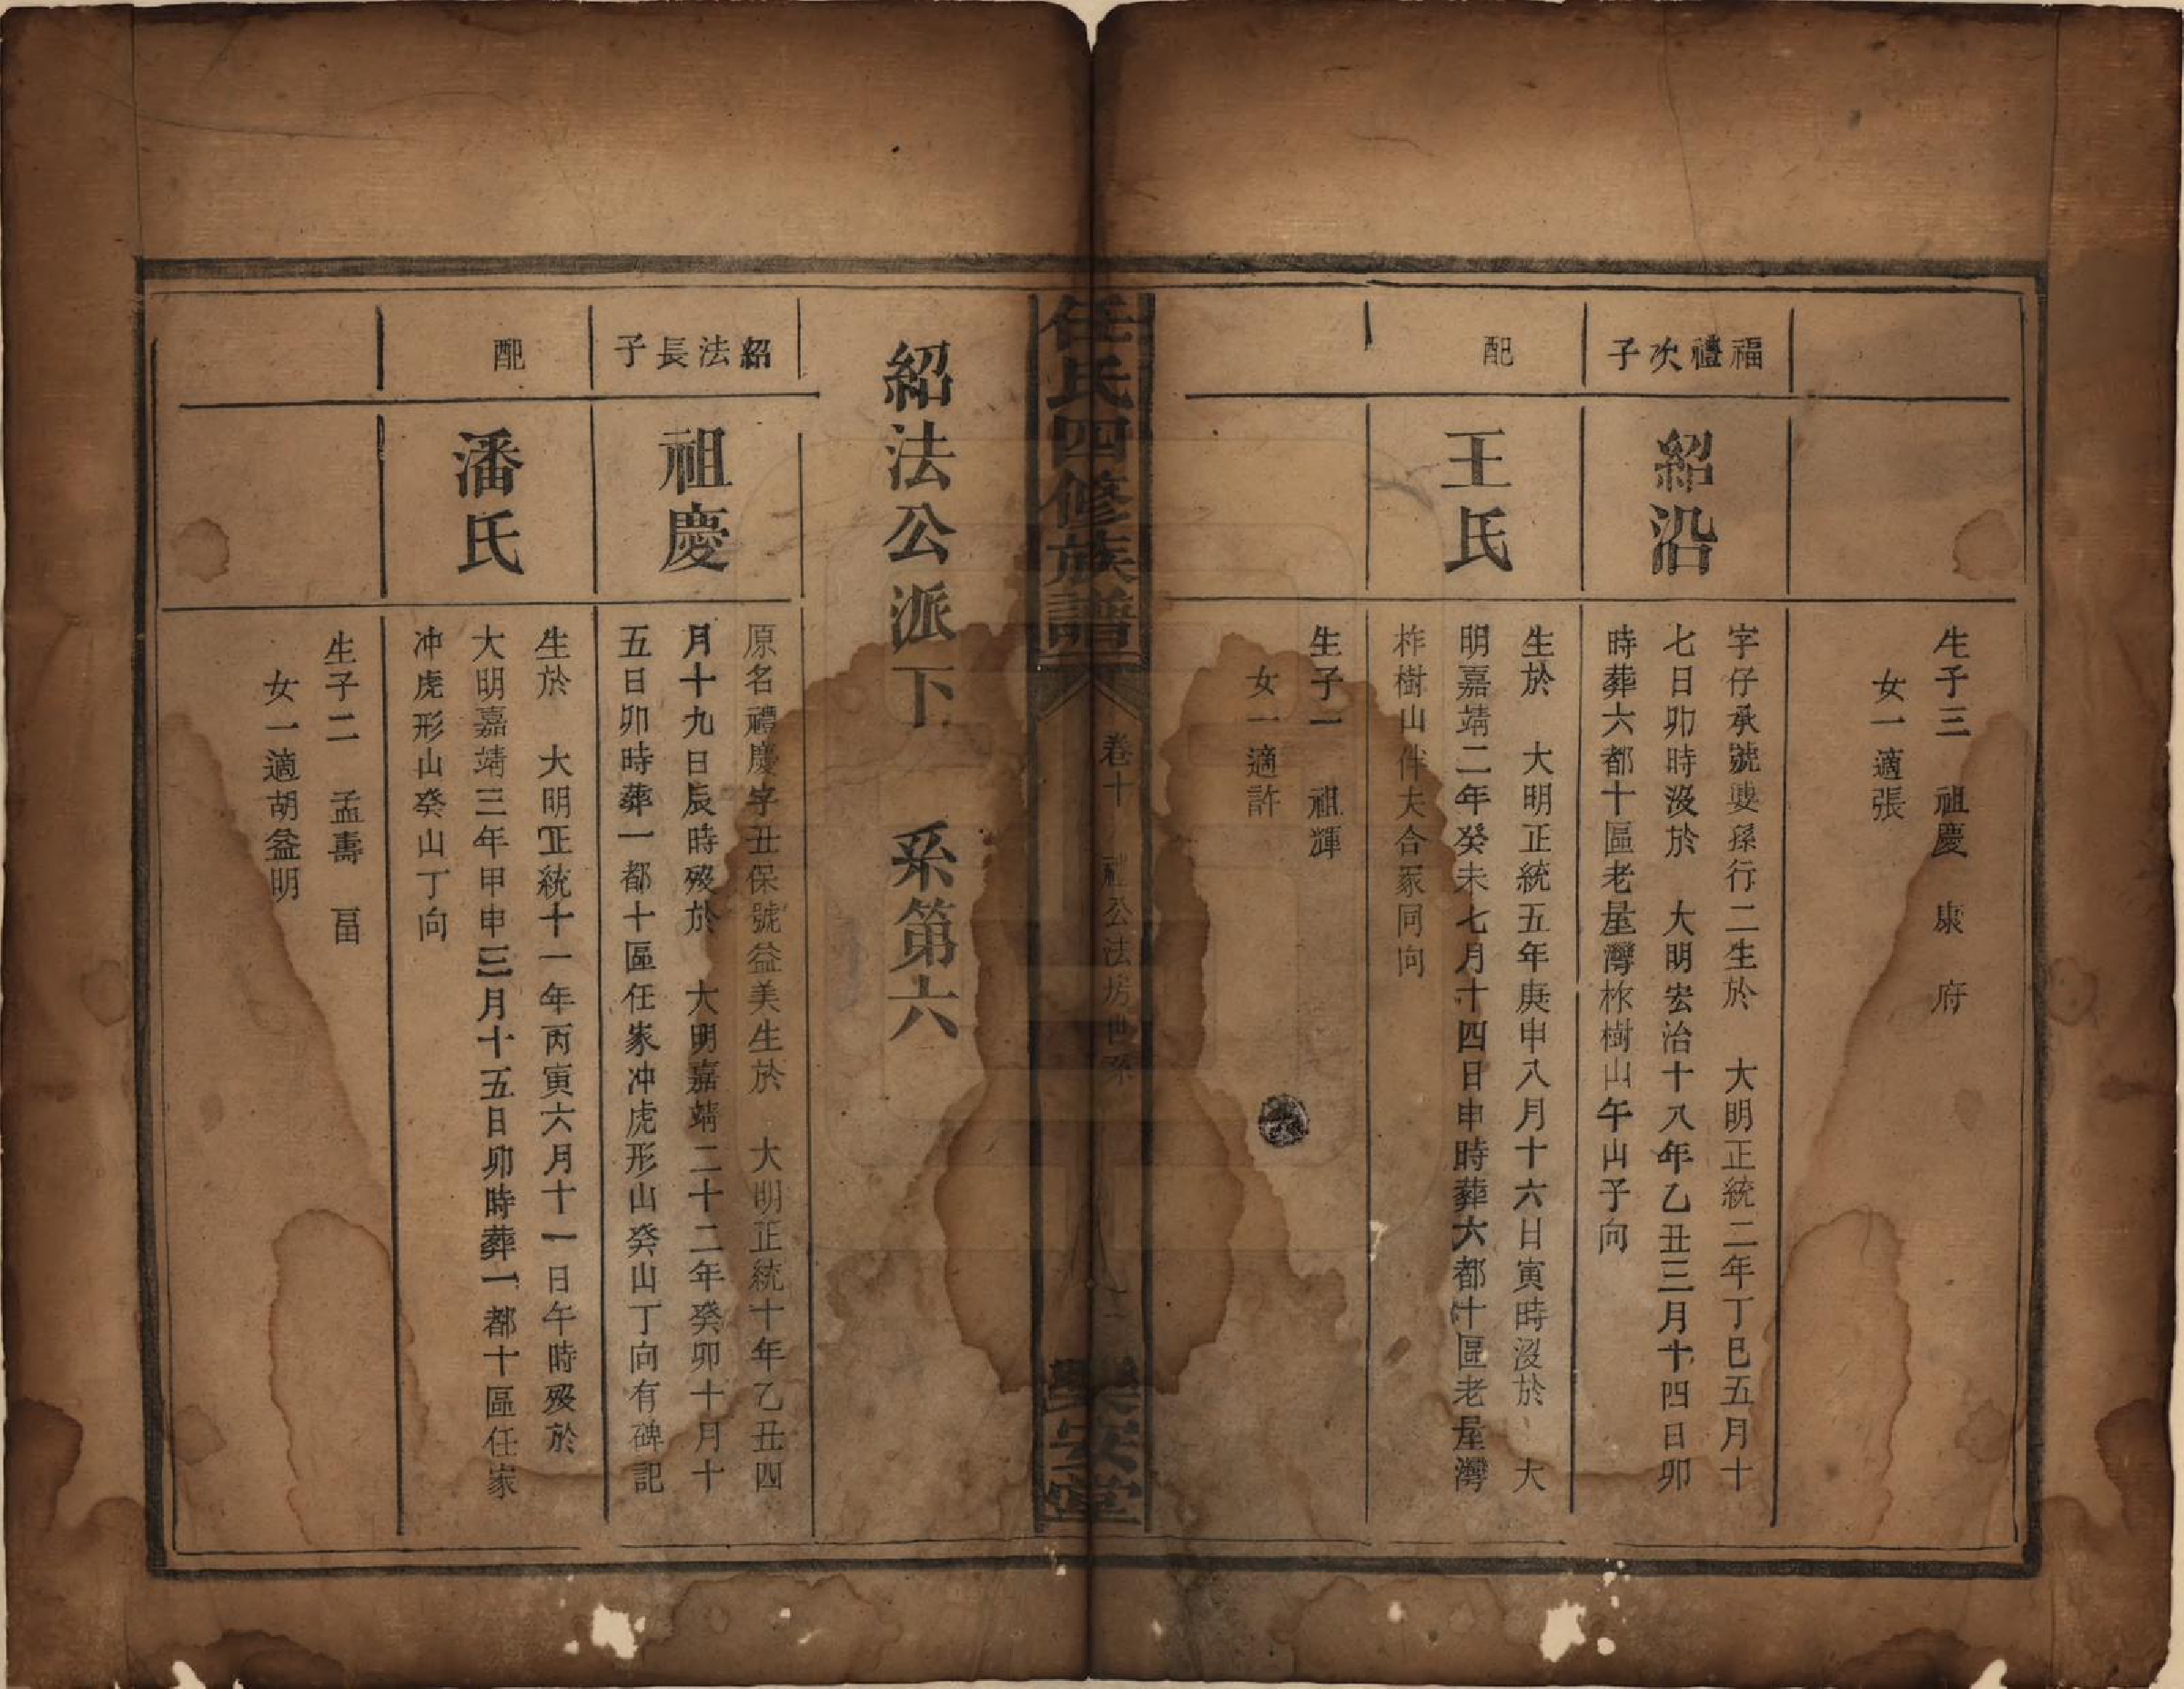 生子三　祖慶　康　府
女一適張
福禮次子
紹沿
字仔承號嬰孫行二生於　大明正統二年丁巳五月十
七日卯時沒於　大明宏治十八年乙丑三月十四日卯
時葬六都十區老屋灣柞樹山午山子向
配
王氏
生於　大明正統五年庚申八月十六日寅時沒於　大
明嘉靖二年癸未七月十四日申時葬六都十區老屋灣
柞樹山伴夫合冢同向
生子一　祖輝
女一適許
任氏四修族譜
卷十　公法房世系
樂安堂
紹法公派下　系第六
紹法長子
祖慶
原名禮慶字丑保號益美生於　大明正統十年乙丑四
月十九日辰時歿於　大明嘉靖二十二年癸卯十月十
五日卯時葬一都十區任家冲虎形山癸山丁向有碑記
配
潘氏
生於　大明正統十一年丙寅六月十一日午時歿於
大明嘉靖三年甲申三月十五日卯時葬一都十區任家
冲虎形山癸山丁向
生子二　孟壽　畐
女一適胡益明